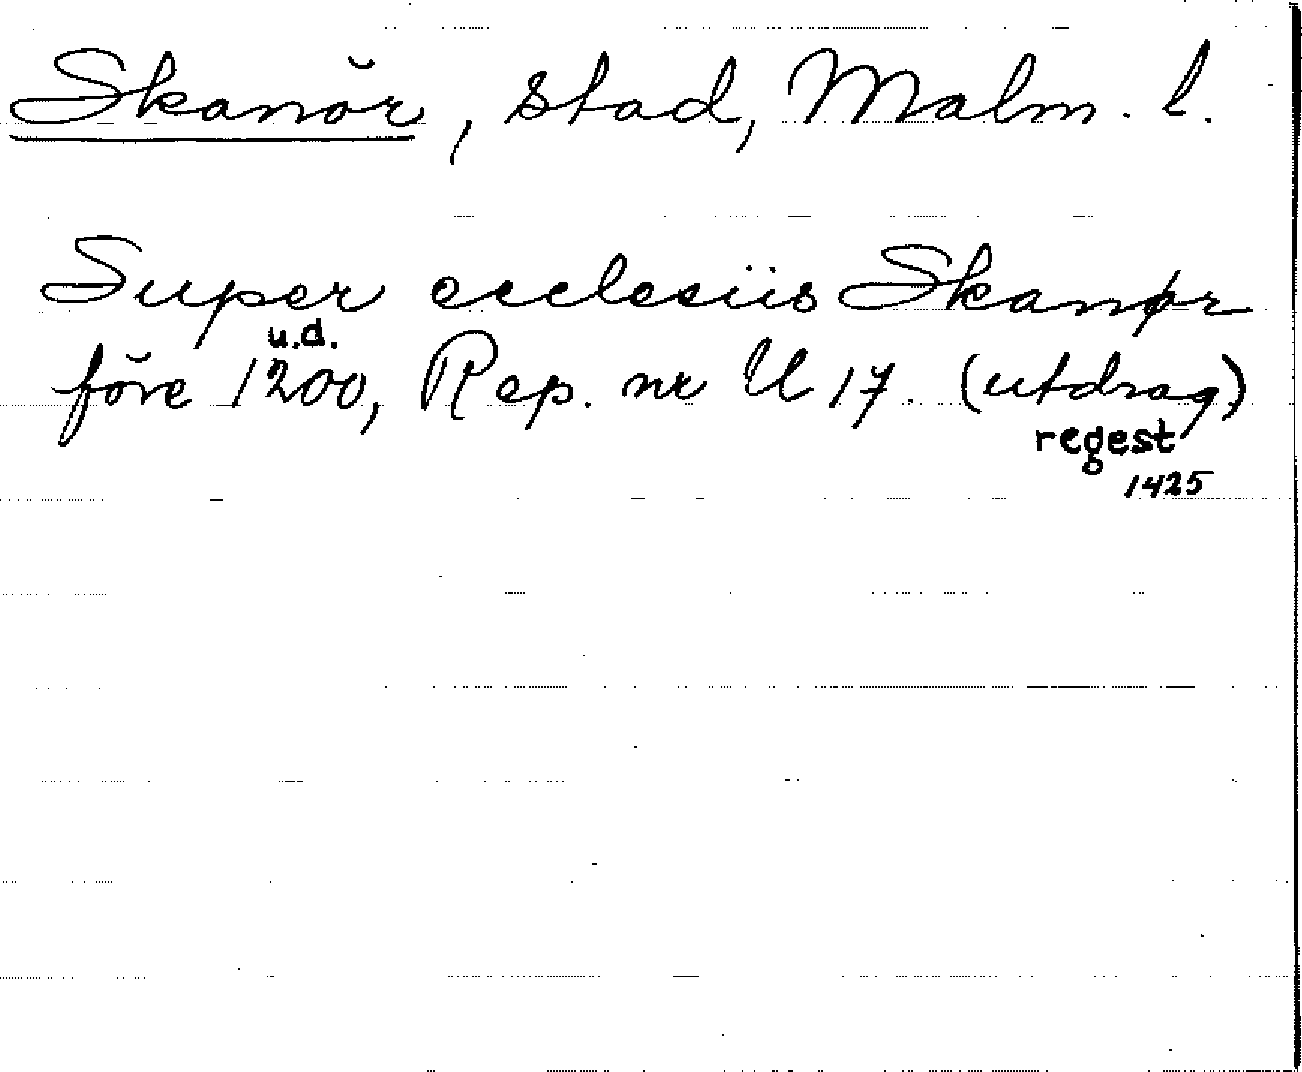 Skanör, stad, Malm. l.
Super ecclesiis Skanør
u.d.
före 1200, Rep. nr U 17. (utdrag)
regest
1425